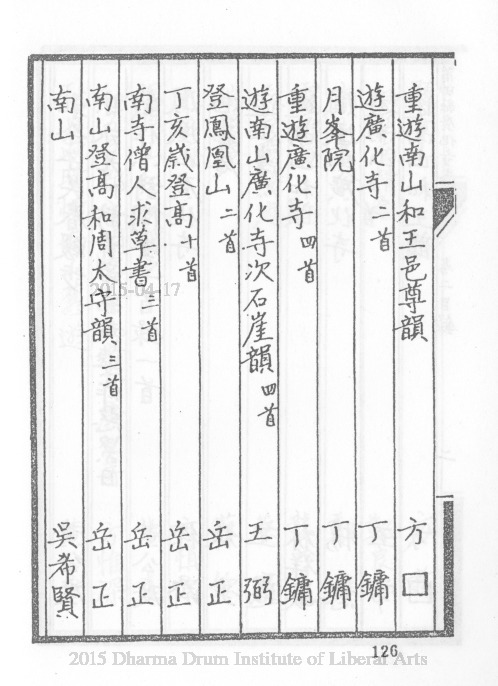 重遊南山和王邑尊韻 方□
遊廣化寺二首 丁鏞
月峯院 丁鏞
重遊廣化寺四首 丁鏞
遊南山廣化寺次石崖韻四首 王弼
登鳳凰山二首 岳正
丁亥歲登高十首 岳正
南寺僧人求草書三首 岳正
南山登高和周太守韻三首 岳正
南山 吳希賢
126
2015-04-17
2015 Dharma Drum Institute of Liberal Arts